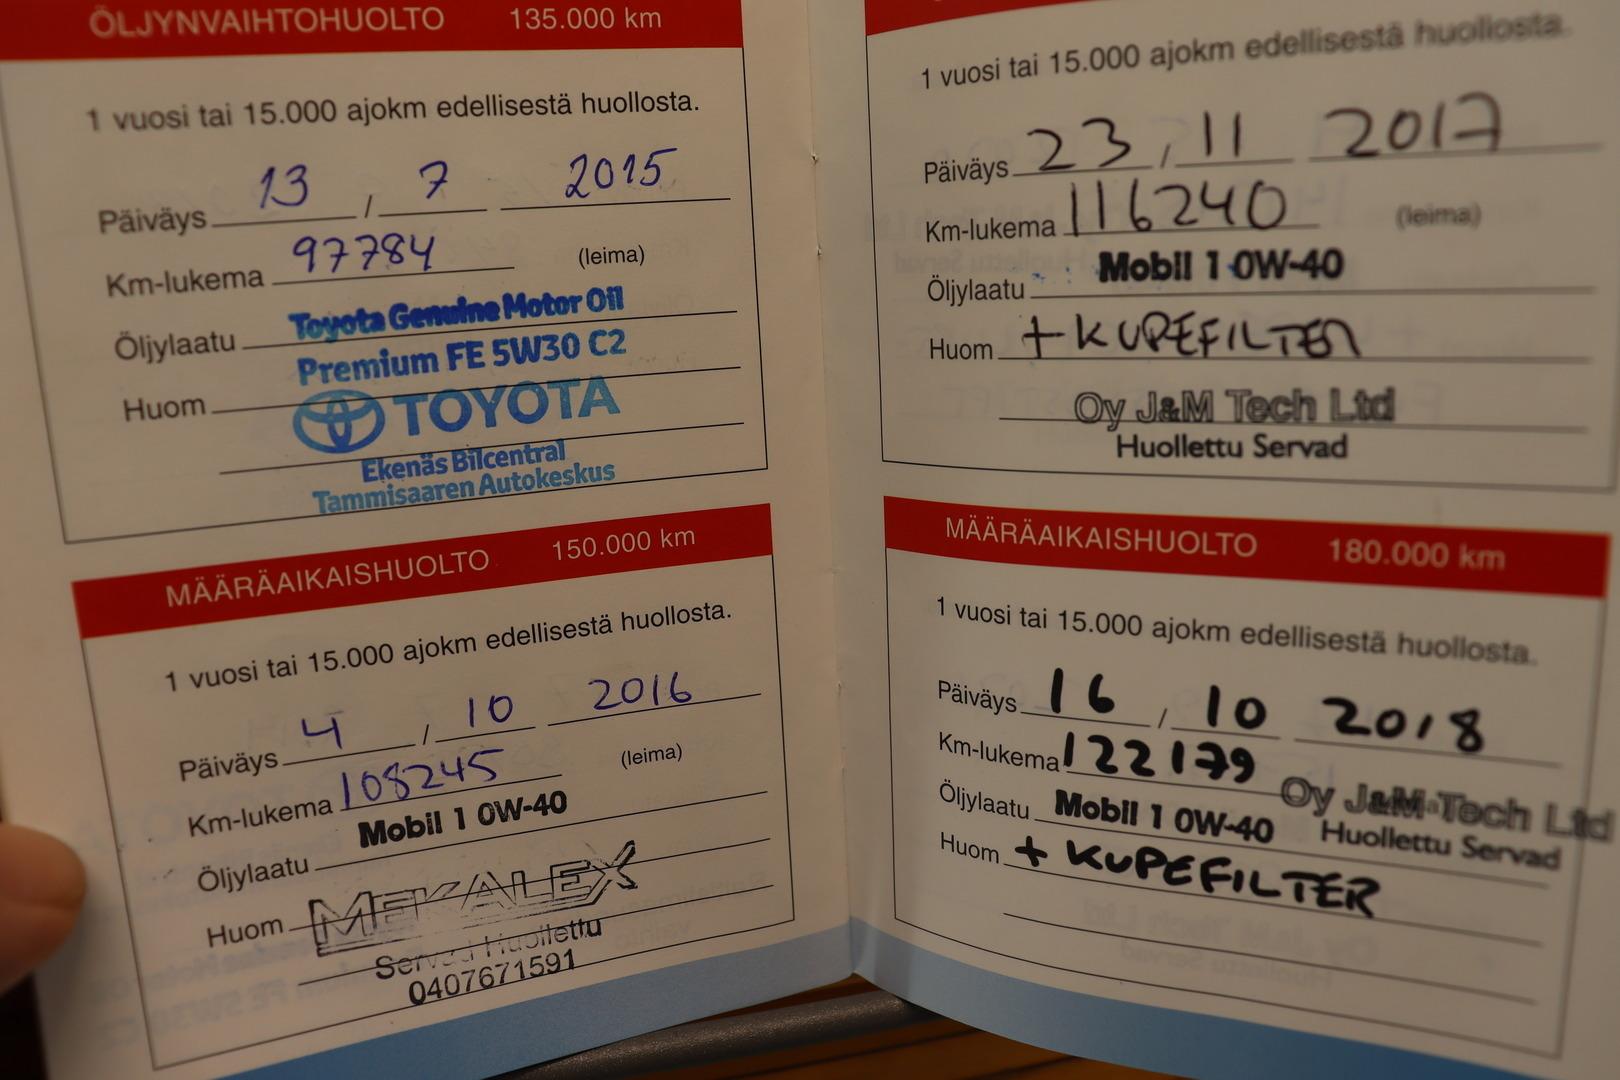 ÖLJYNVAIHTOHUOLTO 135.000 km
1 vuosi tai 15.000 ajokm edellisestä huollosta.
Päiväys 13 / 7 2015
Km-lukema 97784 (leima)
Öljylaatu Toyota Genuine Motor Oil
Premium FE 5W30 C2
Huom TOYOTA
Ekenäs Bilcentral
Tammisaaren Autokeskus
MÄÄRÄAIKAISHUOLTO 150.000 km
1 vuosi tai 15.000 ajokm edellisestä huollosta.
Päiväys 4 / 10 2016
Km-lukema 108245 (leima)
Öljylaatu Mobil 1 0W-40
Huom MEKALEX
Servad Huollettu
0407671591
1 vuosi tai 15.000 ajokm edellisestä huollosta.
Päiväys 23 / 11 2017
Km-lukema 116240 (leima)
Öljylaatu Mobil 1 0W-40
Huom + KUPEFILTER
Oy J&M Tech Ltd
Huollettu Servad
MÄÄRÄAIKAISHUOLTO 180.000 km
1 vuosi tai 15.000 ajokm edellisestä huollosta.
Päiväys 16 / 10 2018
Km-lukema 122179 Oy J&M Tech Ltd
Öljylaatu Mobil 1 0W-40 Huollettu Servad
Huom + KUPEFILTER